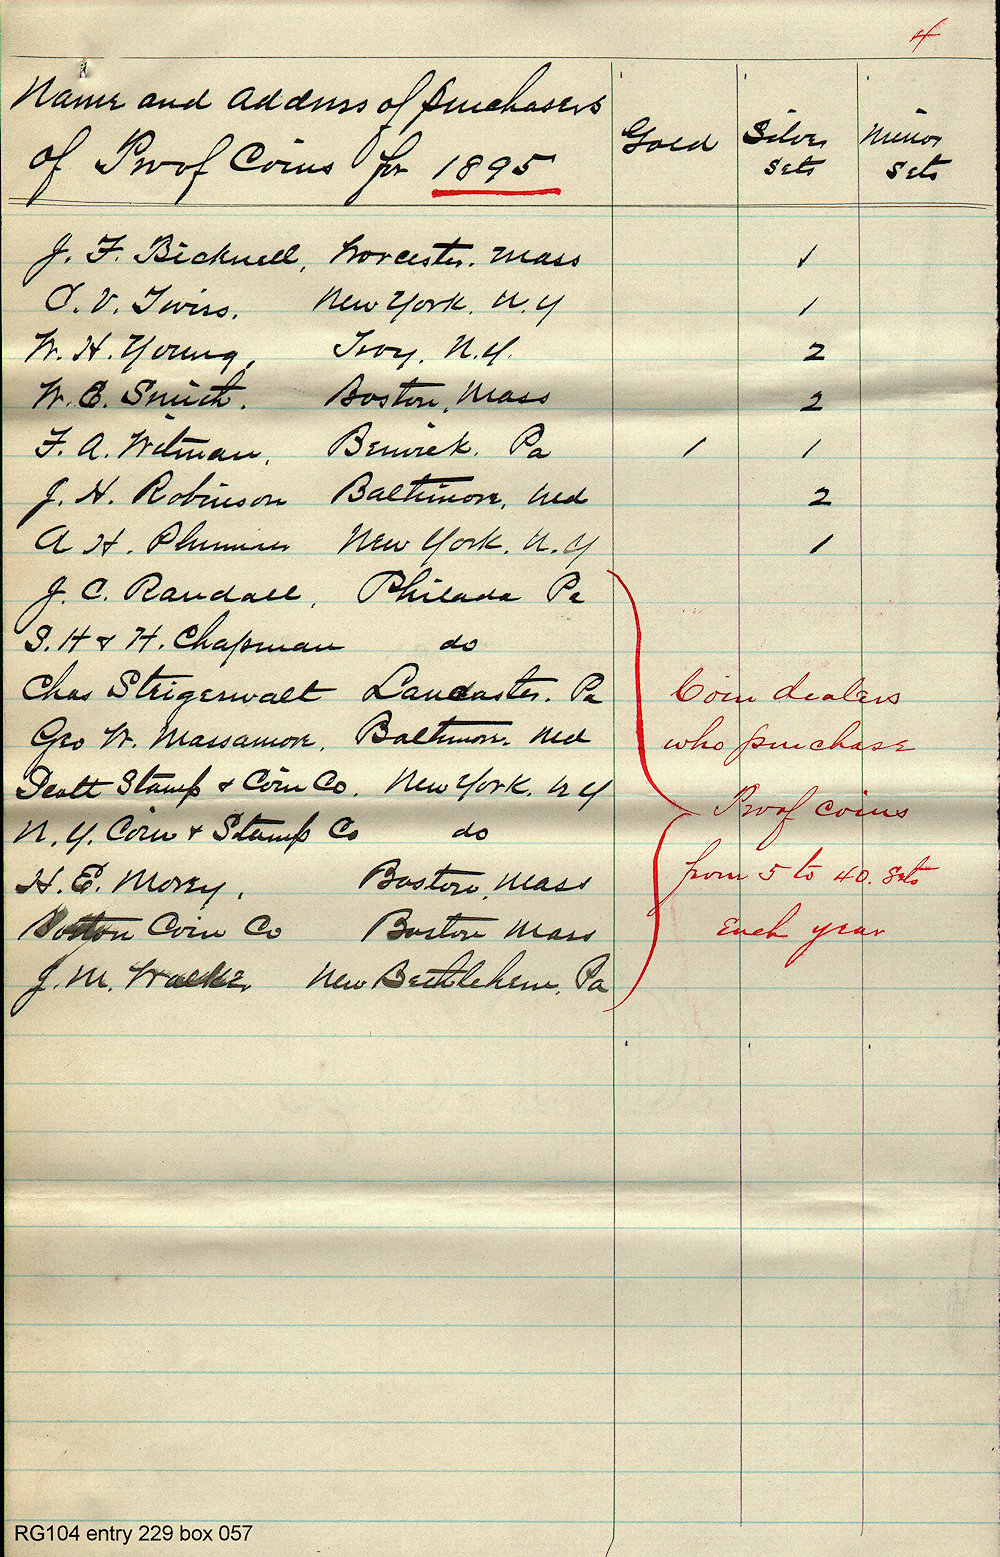 4
Name and address of purchasers
of Proof Coins for 1895
Gold Silver Sets Minor Sets
J. F. Bicknell, Worcester. Mass 1
C. V. Twiss. New York. N.Y 1
W. H. Young, Troy. N.Y. 2
W. E. Smith. Boston, Mass 2
F. A. Witman, Berwick. Pa 1 1
J. H. Robinson Baltimore, Md 2
A H. Plummer New York. N.Y 1
J. C. Randall, Philada Pa
S. H & H. Chapman do
Chas Steigerwalt Lancaster. Pa
Geo W. Massamore, Baltimore. Md
Scott Stamp & Coin Co. New York. N Y
N. Y. Coin & Stamp Co do
H. E. Morey, Boston, Mass
Boston Coin Co Boston Mass
J. M. Walker New Bethlehem, Pa
Coin dealers
who purchase
Proof coins
from 5 to 40. Sets
Each year
RG104 entry 229 box 057